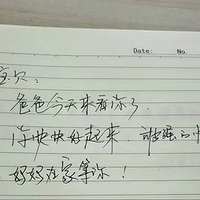 Date: No.
宝贝：
爸爸今天来看你了，
你快快好起来，
妈妈在家等你！